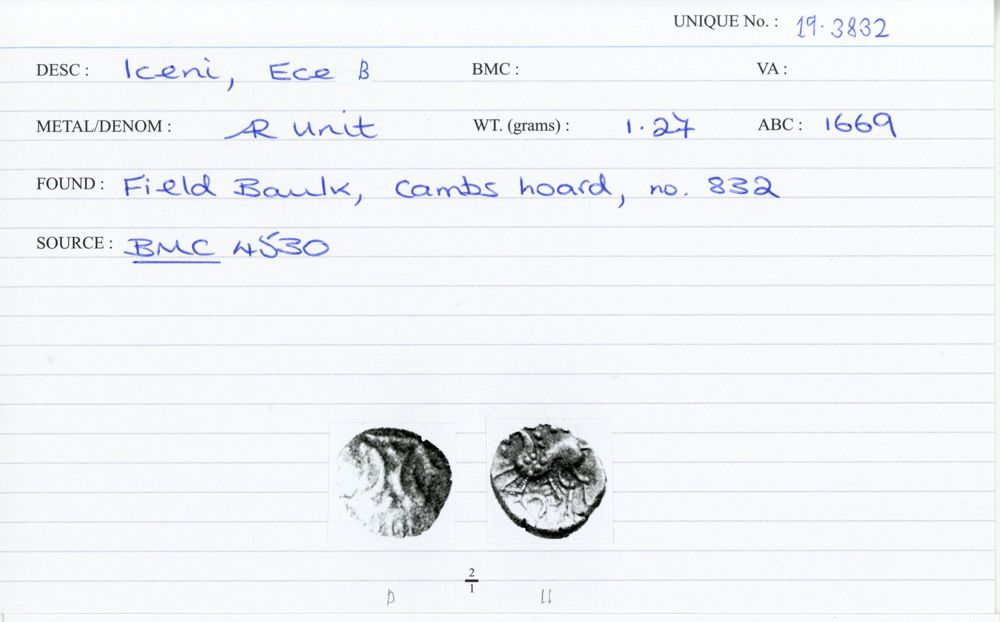 UNIQUE No. : 19.3832
DESC : Iceni, Ece B BMC : VA :
METAL/DENOM : AR Unit WT. (grams) : 1.27 ABC : 1669
FOUND : Field Baulk, Cambs hoard, no. 832
SOURCE : BMC 4530
2
1